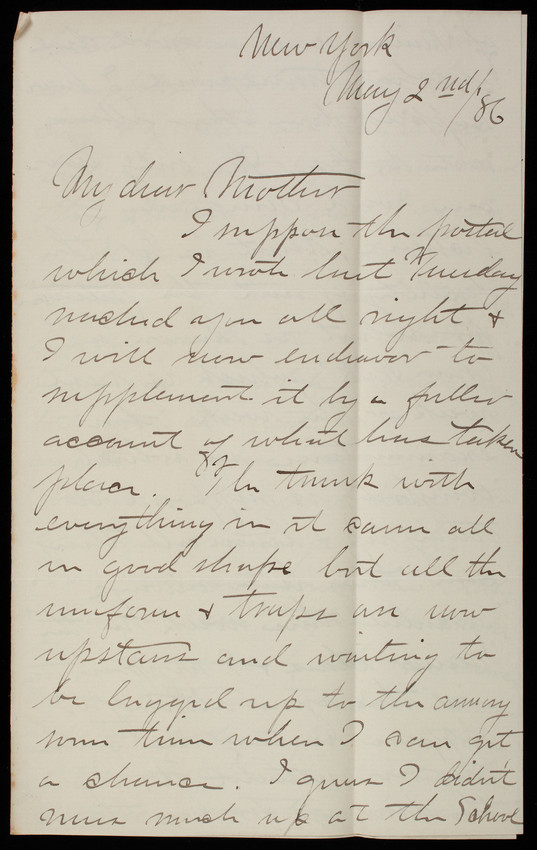 New York
May 2nd/86
My dear Mother
I suppose the postal
which I wrote last Tuesday
reached you all right &
I will now endeavor to
supplement it by a fuller
account of what has taken
place. The trunk with
everything in it came all
in good shape but all the
uniform & traps are now
upstairs and waiting to
be lugged up to the armory
some time when I can get
a chance. I guess I didn't
miss much up at the School